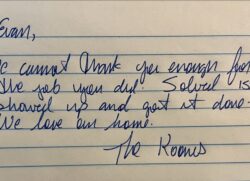 Evan,
cannot thank you enough for
the job you did. Solved is
showed up and got it done
We love our home.
The